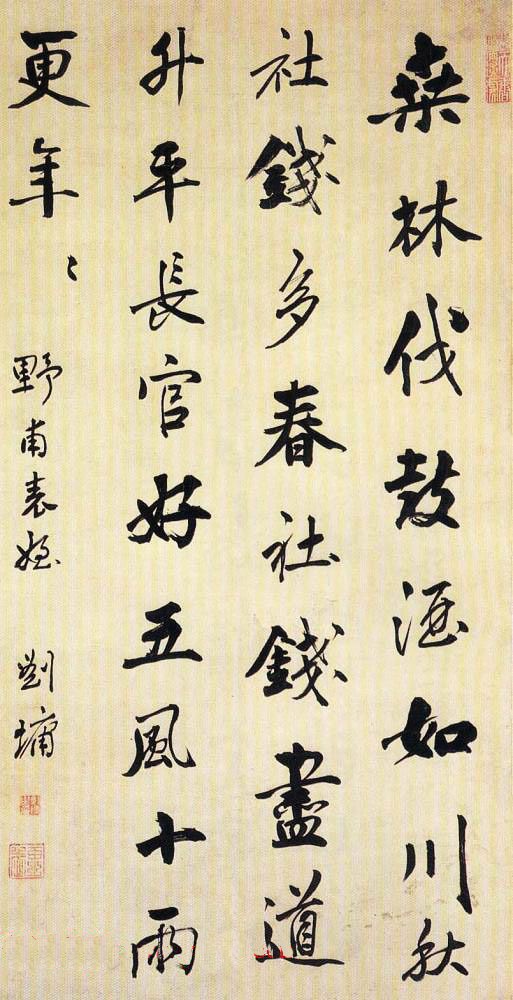 桒林伐鼓酒如川秋
社錢多春社錢盡道
升平長官好五風十雨
更年〻
野甫表姪
劉墉